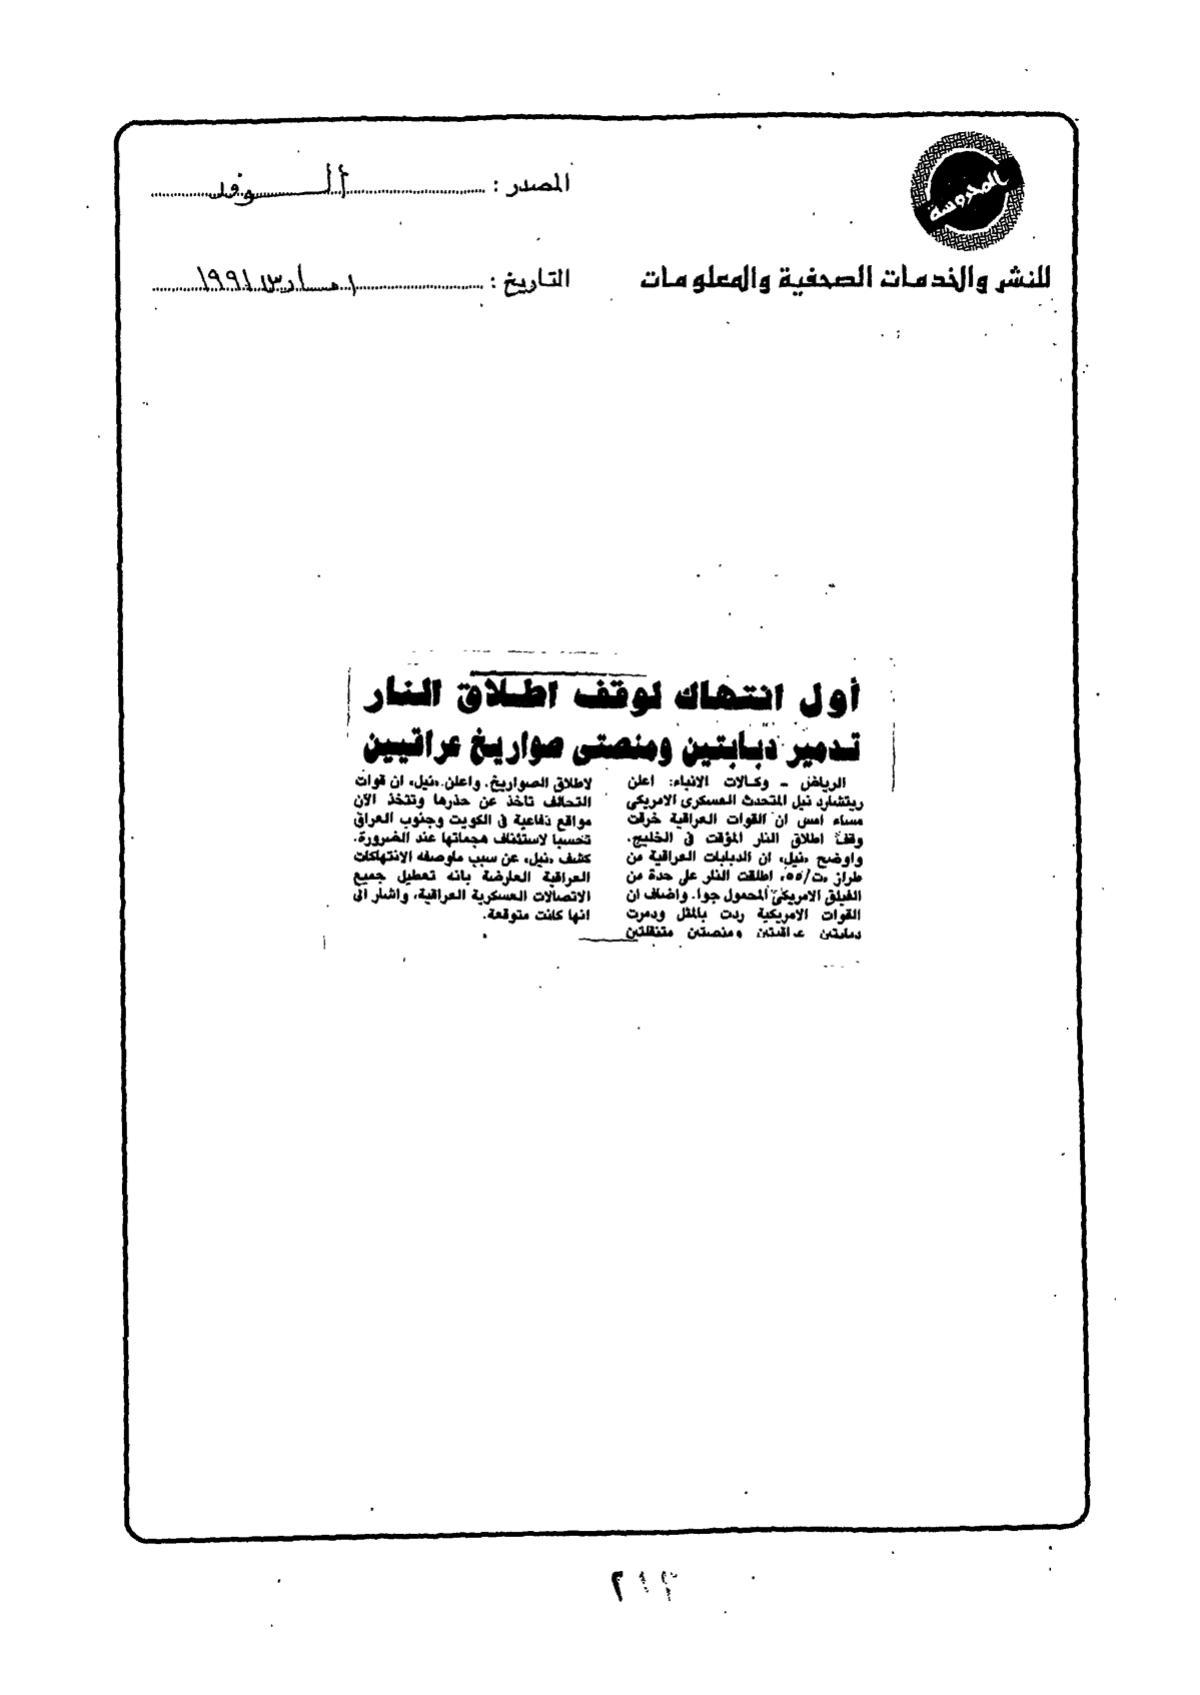 المحروسة
للنشر والخدمات الصحفية والمعلومات
المصدر : الوفد
التاريخ : ١ مارس ١٩٩١
أول انتهاك لوقف اطلاق النار
تدمير دبابتين ومنصتى صواريخ عراقيين
الرياض - وكالات الانباء: اعلن
ريتشارد نيل المتحدث العسكرى الامريكى
مساء امس ان القوات العراقية خرقت
وقف اطلاق النار المؤقت فى الخليج.
واوضح «نيل» ان الدبابات العراقية من
طراز «ت/٥٥» اطلقت النار على حدة من
الفيلق الامريكى المحمول جوا. واضاف ان
القوات الامريكية ردت بالمثل ودمرت
دبابتين عراقيتين ومنصتين متنقلتين
لاطلاق الصواريخ. واعلن «نيل» ان قوات
التحالف تاخذ عن حذرها وتتخذ الآن
مواقع دفاعية فى الكويت وجنوب العراق
تحسبا لاستئناف هجماتها عند الضرورة.
كشف «نيل» عن سبب ماوصفه الانتهاكات
العراقية العارضة بانه تعطيل جميع
الاتصالات العسكرية العراقية، واشار الى
انها كانت متوقعة.